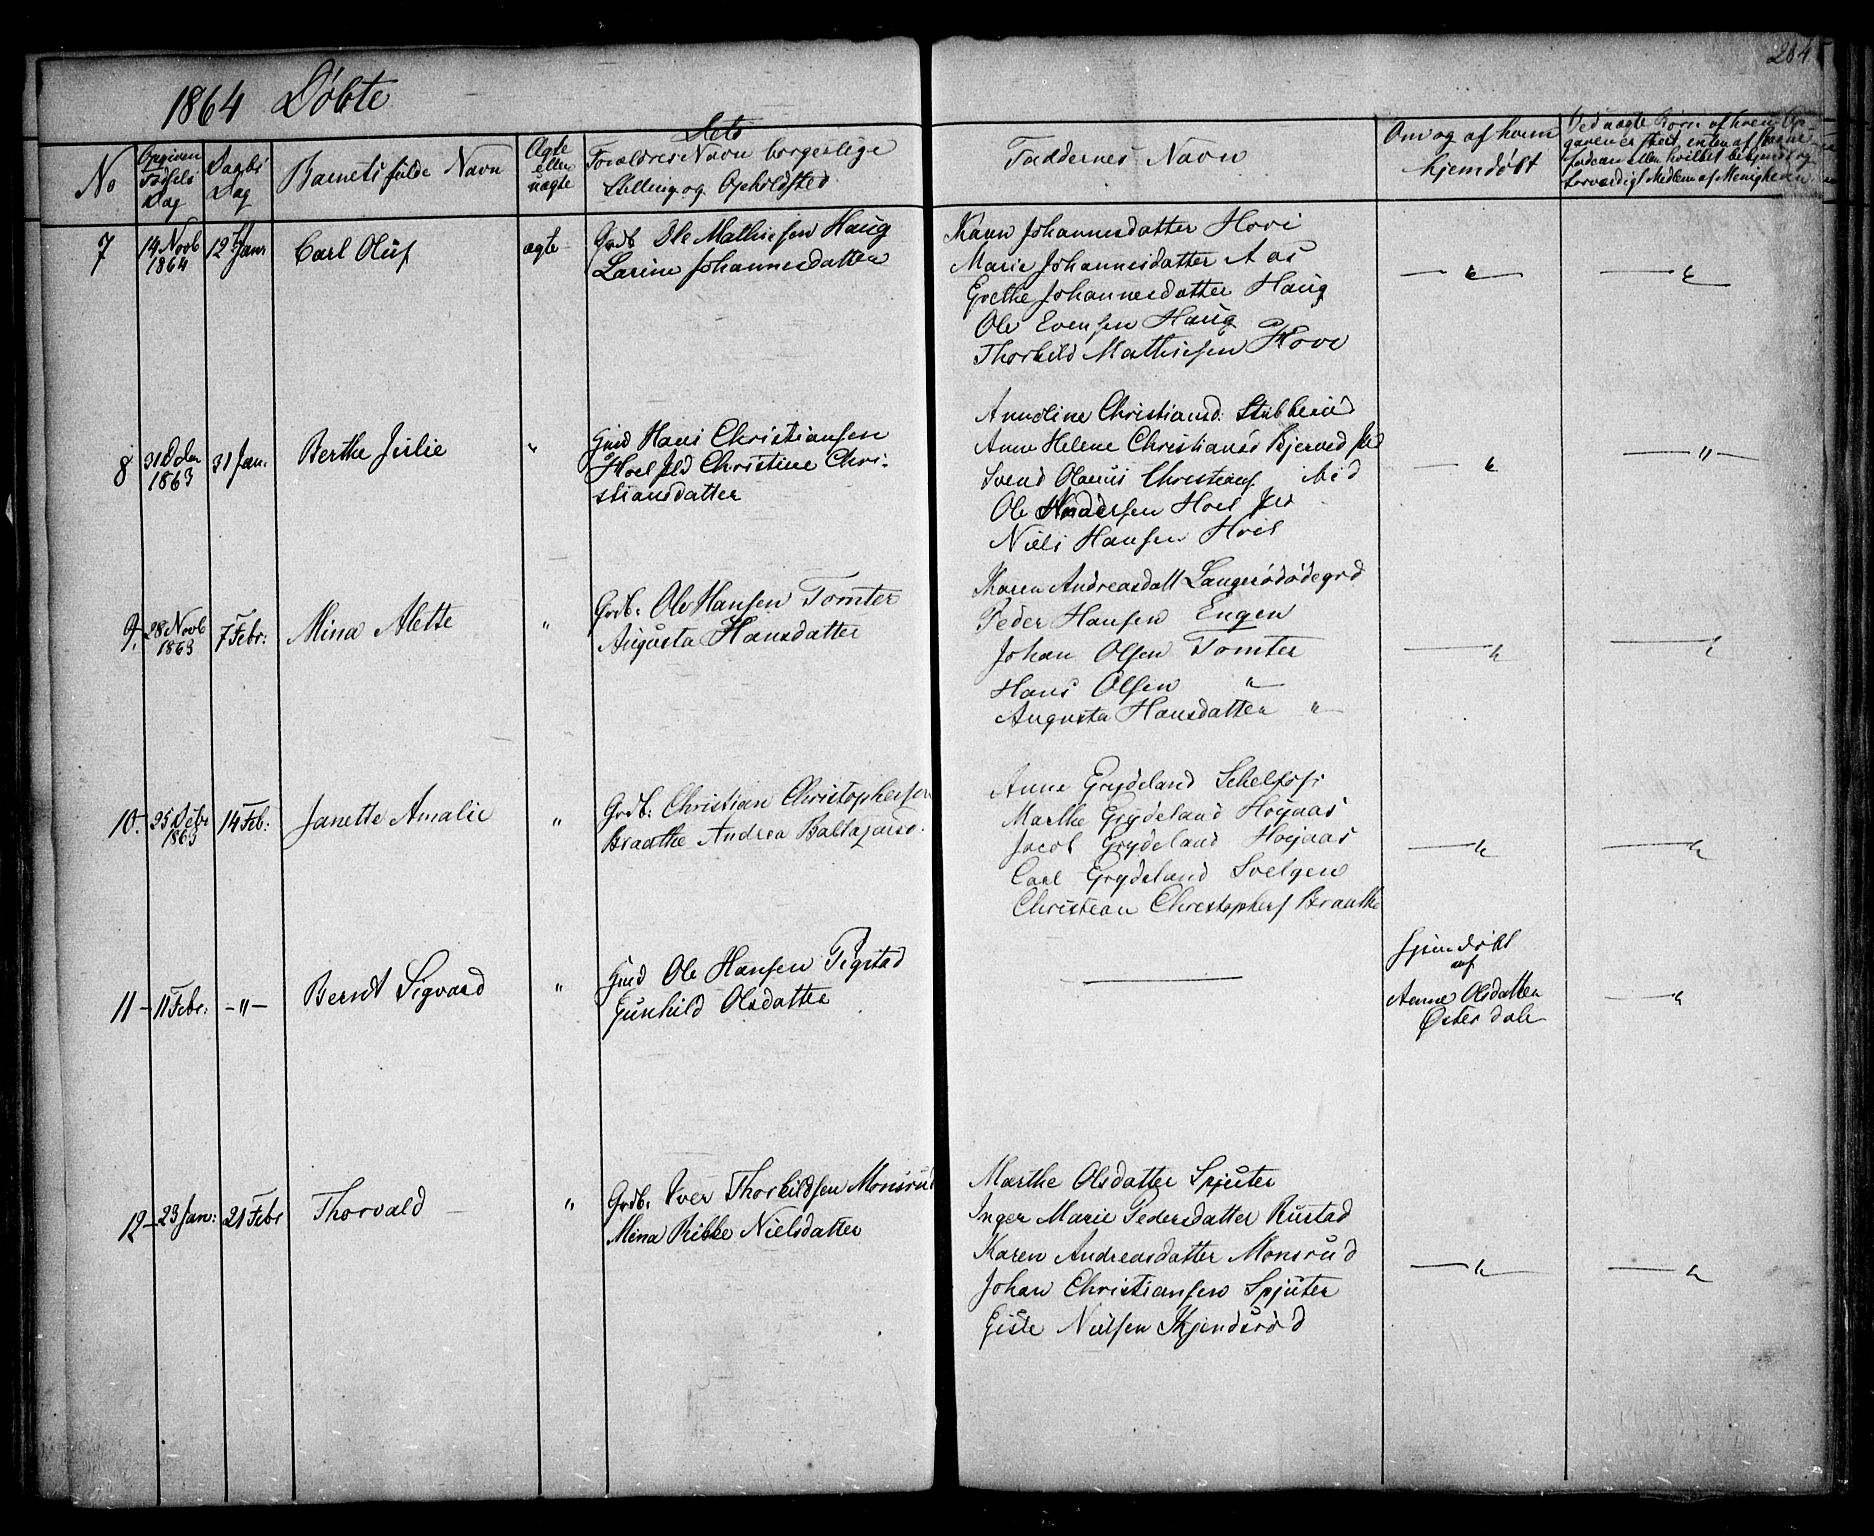 204
1864 Døbte
No
Opgiven Fødsels Dag
Daabs Dag
Barnets fulde Navn
Ægte eller uægte
Forældres Navn borgerlige
Stilling og Opholdsted
Faddernes Navn
Om og af hvem
hjemdøbt
7
14 Novb
1864
12 Janr
Carl Oluf
ægte
Grdb Ole Mathiesen Haug
Larine Johannesdatter
Karen Johannesdatter Hovi
Marie Johannesdatter Aas
Grethe Johannesdatter Haug
Ole Evensen Haug
Thorkild Mathiesen Hove
8
31 Dcbr
1863
31 Jan.
Berthe Julie
"
Gmd Hans Christiansen
Hoel Christine Chri-
stiansdatter
Annoline Christiansd: Stubberud
Anne Helene Christiansd
Svend Olaus Christians
Ole Hoel
Niels Hansen Hoel
9.
28 Novb
1863
7 Febr:
Mina Alette
"
Grdb: Ole Hansen Tomter
Augusta Hansdatter
Karen Andreasdatt
Peder Hansen Engen
Johan Olsen Tomter
Hans Olsen "
Augusta Hansdatter "
10.
25 Debr
1863
14 Feb:
Janette Amalie
"
Grdb: Christian Christophersen
Braathe Andrea Baltazarsd.
Anne Grydeland
Marthe Grydeland Høyaas
Jacob Grydeland Høyaas
Carl Grydeland Svelgen
Christian Christophers Braathe
11 -
11 Febr:
-"-
Bernt Sigvard
"
Gmd Ole Hansen Tigstad
Gunhild Olsdatter
hjemdøbt
af
Anne Olsdatter
Østerdal
12 -
23 Jan:
21 Febr
Thorvald
"
Grdb. Iver Thorkildsen Monsrud
Mina Rikke Nielsdatter
Marthe Olsdatter Spjuter
Inger Marie Pedersdatter Rustad
Karen Andreasdatter Monsrud
Johan Christiansen Spjuter
Gisle Nielsen Kjendsrød